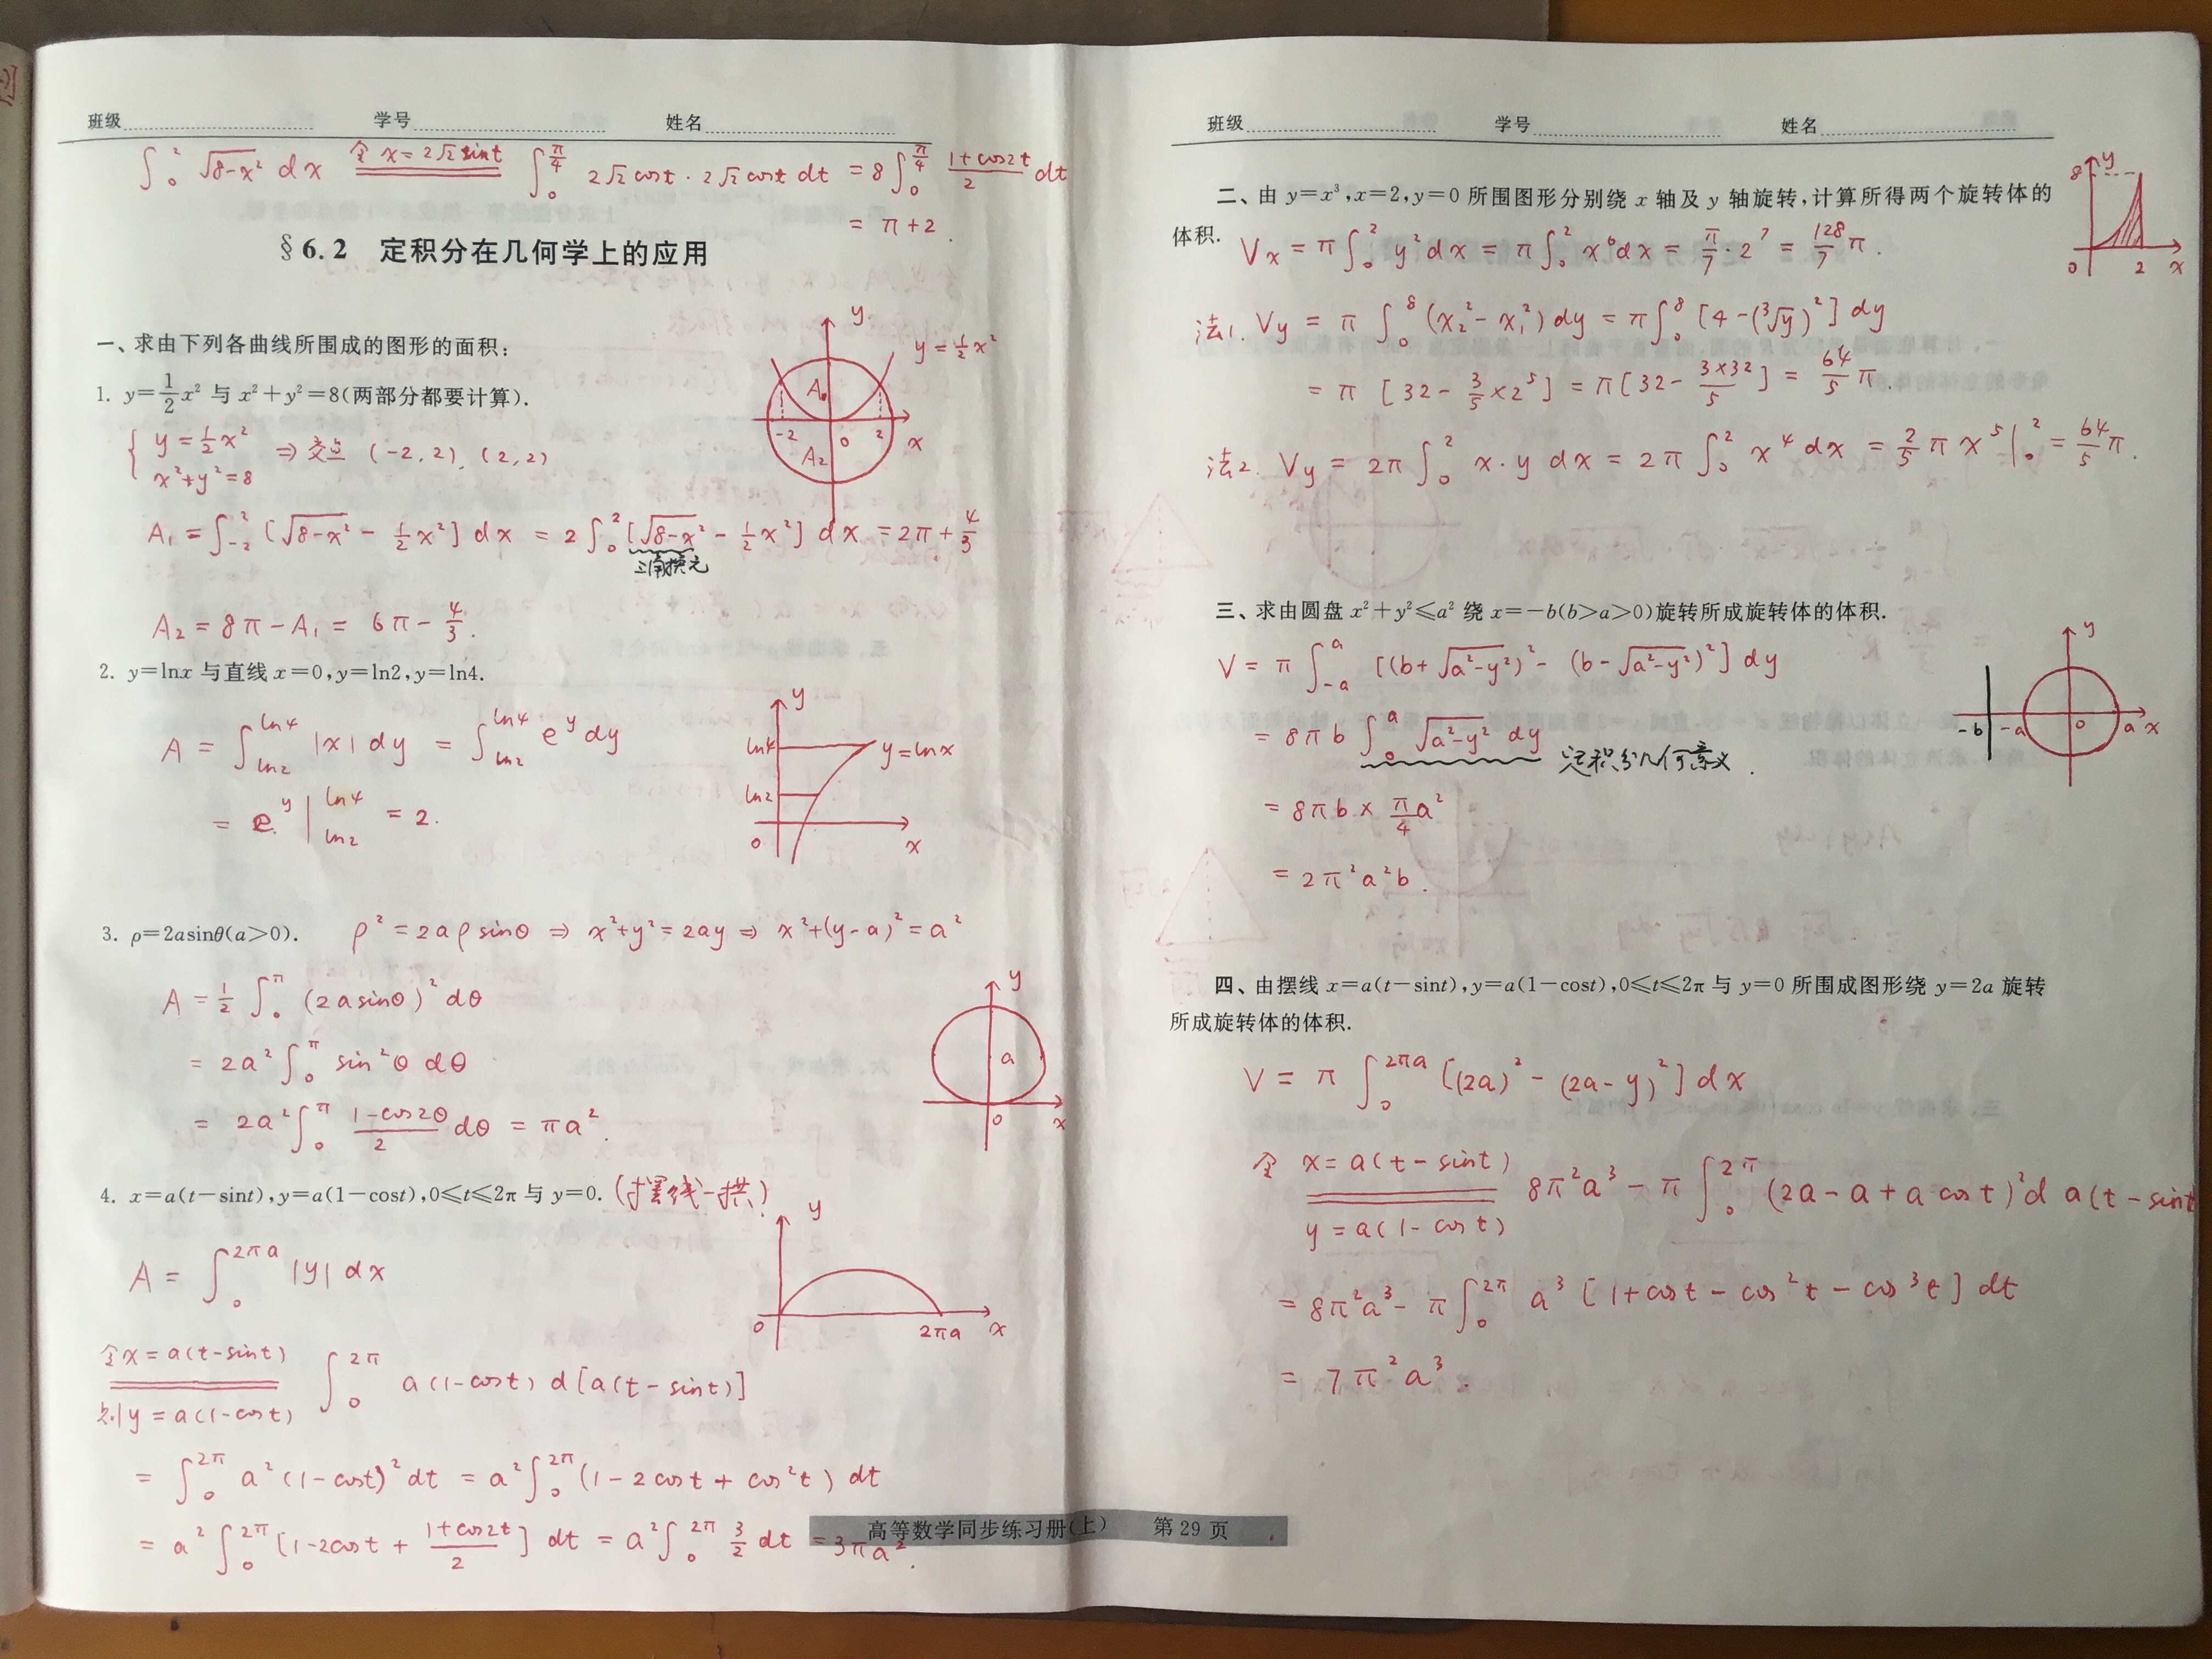 班级 学号 姓名
∫₀² √(8-x²) dx 令 x=2√2 sint ∫₀^(π/4) 2√2 cost · 2√2 cost dt = 8∫₀^(π/4) (1+cos2t)/2 dt
= π+2.
§6.2 定积分在几何学上的应用
一、求由下列各曲线所围成的图形的面积:
1. y=1/2 x² 与 x²+y²=8(两部分都要计算).
{ y=1/2 x²
x²+y²=8 ⇒ 交点 (-2,2), (2,2)
y y=1/2 x² A₁ -2 0 2 x A₂
A₁ = ∫₋₂² [√(8-x²) - 1/2 x²] dx = 2∫₀² [√(8-x²) - 1/2 x²] dx = 2π+4/3
三角换元
A₂ = 8π-A₁ = 6π-4/3.
2. y=lnx 与直线 x=0,y=ln2,y=ln4.
A = ∫_(ln2)^(ln4) |x| dy = ∫_(ln2)^(ln4) e^y dy
= e^y |_(ln2)^(ln4) = 2.
y ln4 y=lnx ln2 0 x
3. ρ=2asinθ(a>0). ρ²=2aρsinθ ⇒ x²+y²=2ay ⇒ x²+(y-a)²=a²
A = 1/2 ∫₀^π (2asinθ)² dθ
= 2a² ∫₀^π sin²θ dθ
= 2a² ∫₀^π (1-cos2θ)/2 dθ = πa².
y a 0 x
4. x=a(t-sint),y=a(1-cost),0≤t≤2π 与 y=0. (摆线一拱)
A = ∫₀^(2πa) |y| dx
y 0 2πa x
令x=a(t-sint)
则y=a(1-cost) ∫₀^(2π) a(1-cost) d[a(t-sint)]
= ∫₀^(2π) a²(1-cost)² dt = a² ∫₀^(2π) (1-2cost+cos²t) dt
= a² ∫₀^(2π) [1-2cost+(1+cos2t)/2] dt = a² ∫₀^(2π) 3/2 dt = 3πa².
高等数学同步练习册(上) 第29页
班级 学号 姓名
二、由 y=x³,x=2,y=0 所围图形分别绕 x 轴及 y 轴旋转,计算所得两个旋转体的
体积. Vx = π∫₀² y² dx = π∫₀² x⁶ dx = π/7 · 2⁷ = 128/7 π.
y 8 0 2 x
法1. Vy = π ∫₀⁸ (x₂²-x₁²) dy = π∫₀⁸ [4-(³√y)²] dy
= π [32 - 3/5 ×2⁵] = π[32 - 3×32/5] = 64/5 π.
法2. Vy = 2π ∫₀² x·y dx = 2π ∫₀² x⁴ dx = 2/5 π x⁵ |₀² = 64/5 π.
三、求由圆盘 x²+y²≤a² 绕 x=-b(b>a>0)旋转所成旋转体的体积.
V = π ∫₋ₐᵃ [(b+√(a²-y²))² - (b-√(a²-y²))²] dy
= 8πb ∫₀ᵃ √(a²-y²) dy 定积分几何意义.
= 8πb × π/4 a²
= 2π²a²b.
y -b -a 0 a x
四、由摆线 x=a(t-sint),y=a(1-cost),0≤t≤2π 与 y=0 所围成图形绕 y=2a 旋转
所成旋转体的体积.
V = π ∫₀^(2πa) [(2a)² - (2a-y)²] dx
令 x=a(t-sint)
y=a(1-cost) 8π²a³ - π ∫₀^(2π) (2a-a+a cost)² d a(t-sint
= 8π²a³ - π∫₀^(2π) a³ [1+cost-cos²t-cos³t] dt
= 7π²a³.